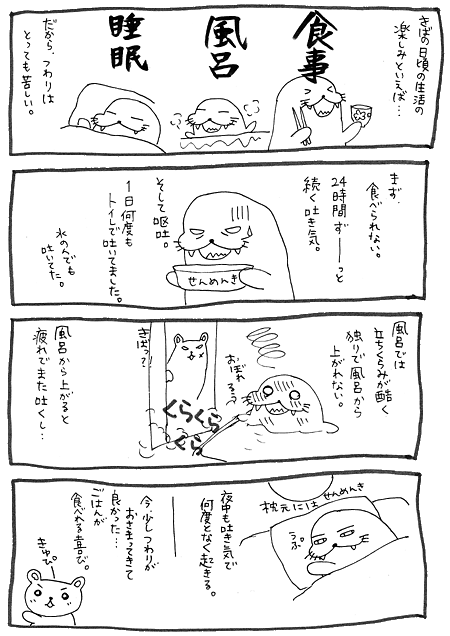 きばの日頃の生活の
楽しみといえば…
食事
風呂
睡眠
だから、つわりは
とっても苦しい。
まず、
食べられない。
24時間ずーーっと
続く吐き気。
そして嘔吐。
1日何度も
トイレで吐いてました。
水のんでも
吐いてた。
せんめんき
風呂では
立ちくらみが酷く
独りで風呂から
上がれない。
おぼれるぅ
くらくら
くら
きばっ?!
風呂から上がると
疲れでまた吐くし…
枕元には
せんめんき
うぷ。
夜中も吐き気で
何度となく起きる。
今、少しつわりが
おさまってきて
良かった…
ごはんが
食べれる喜び。
きゅぴ。